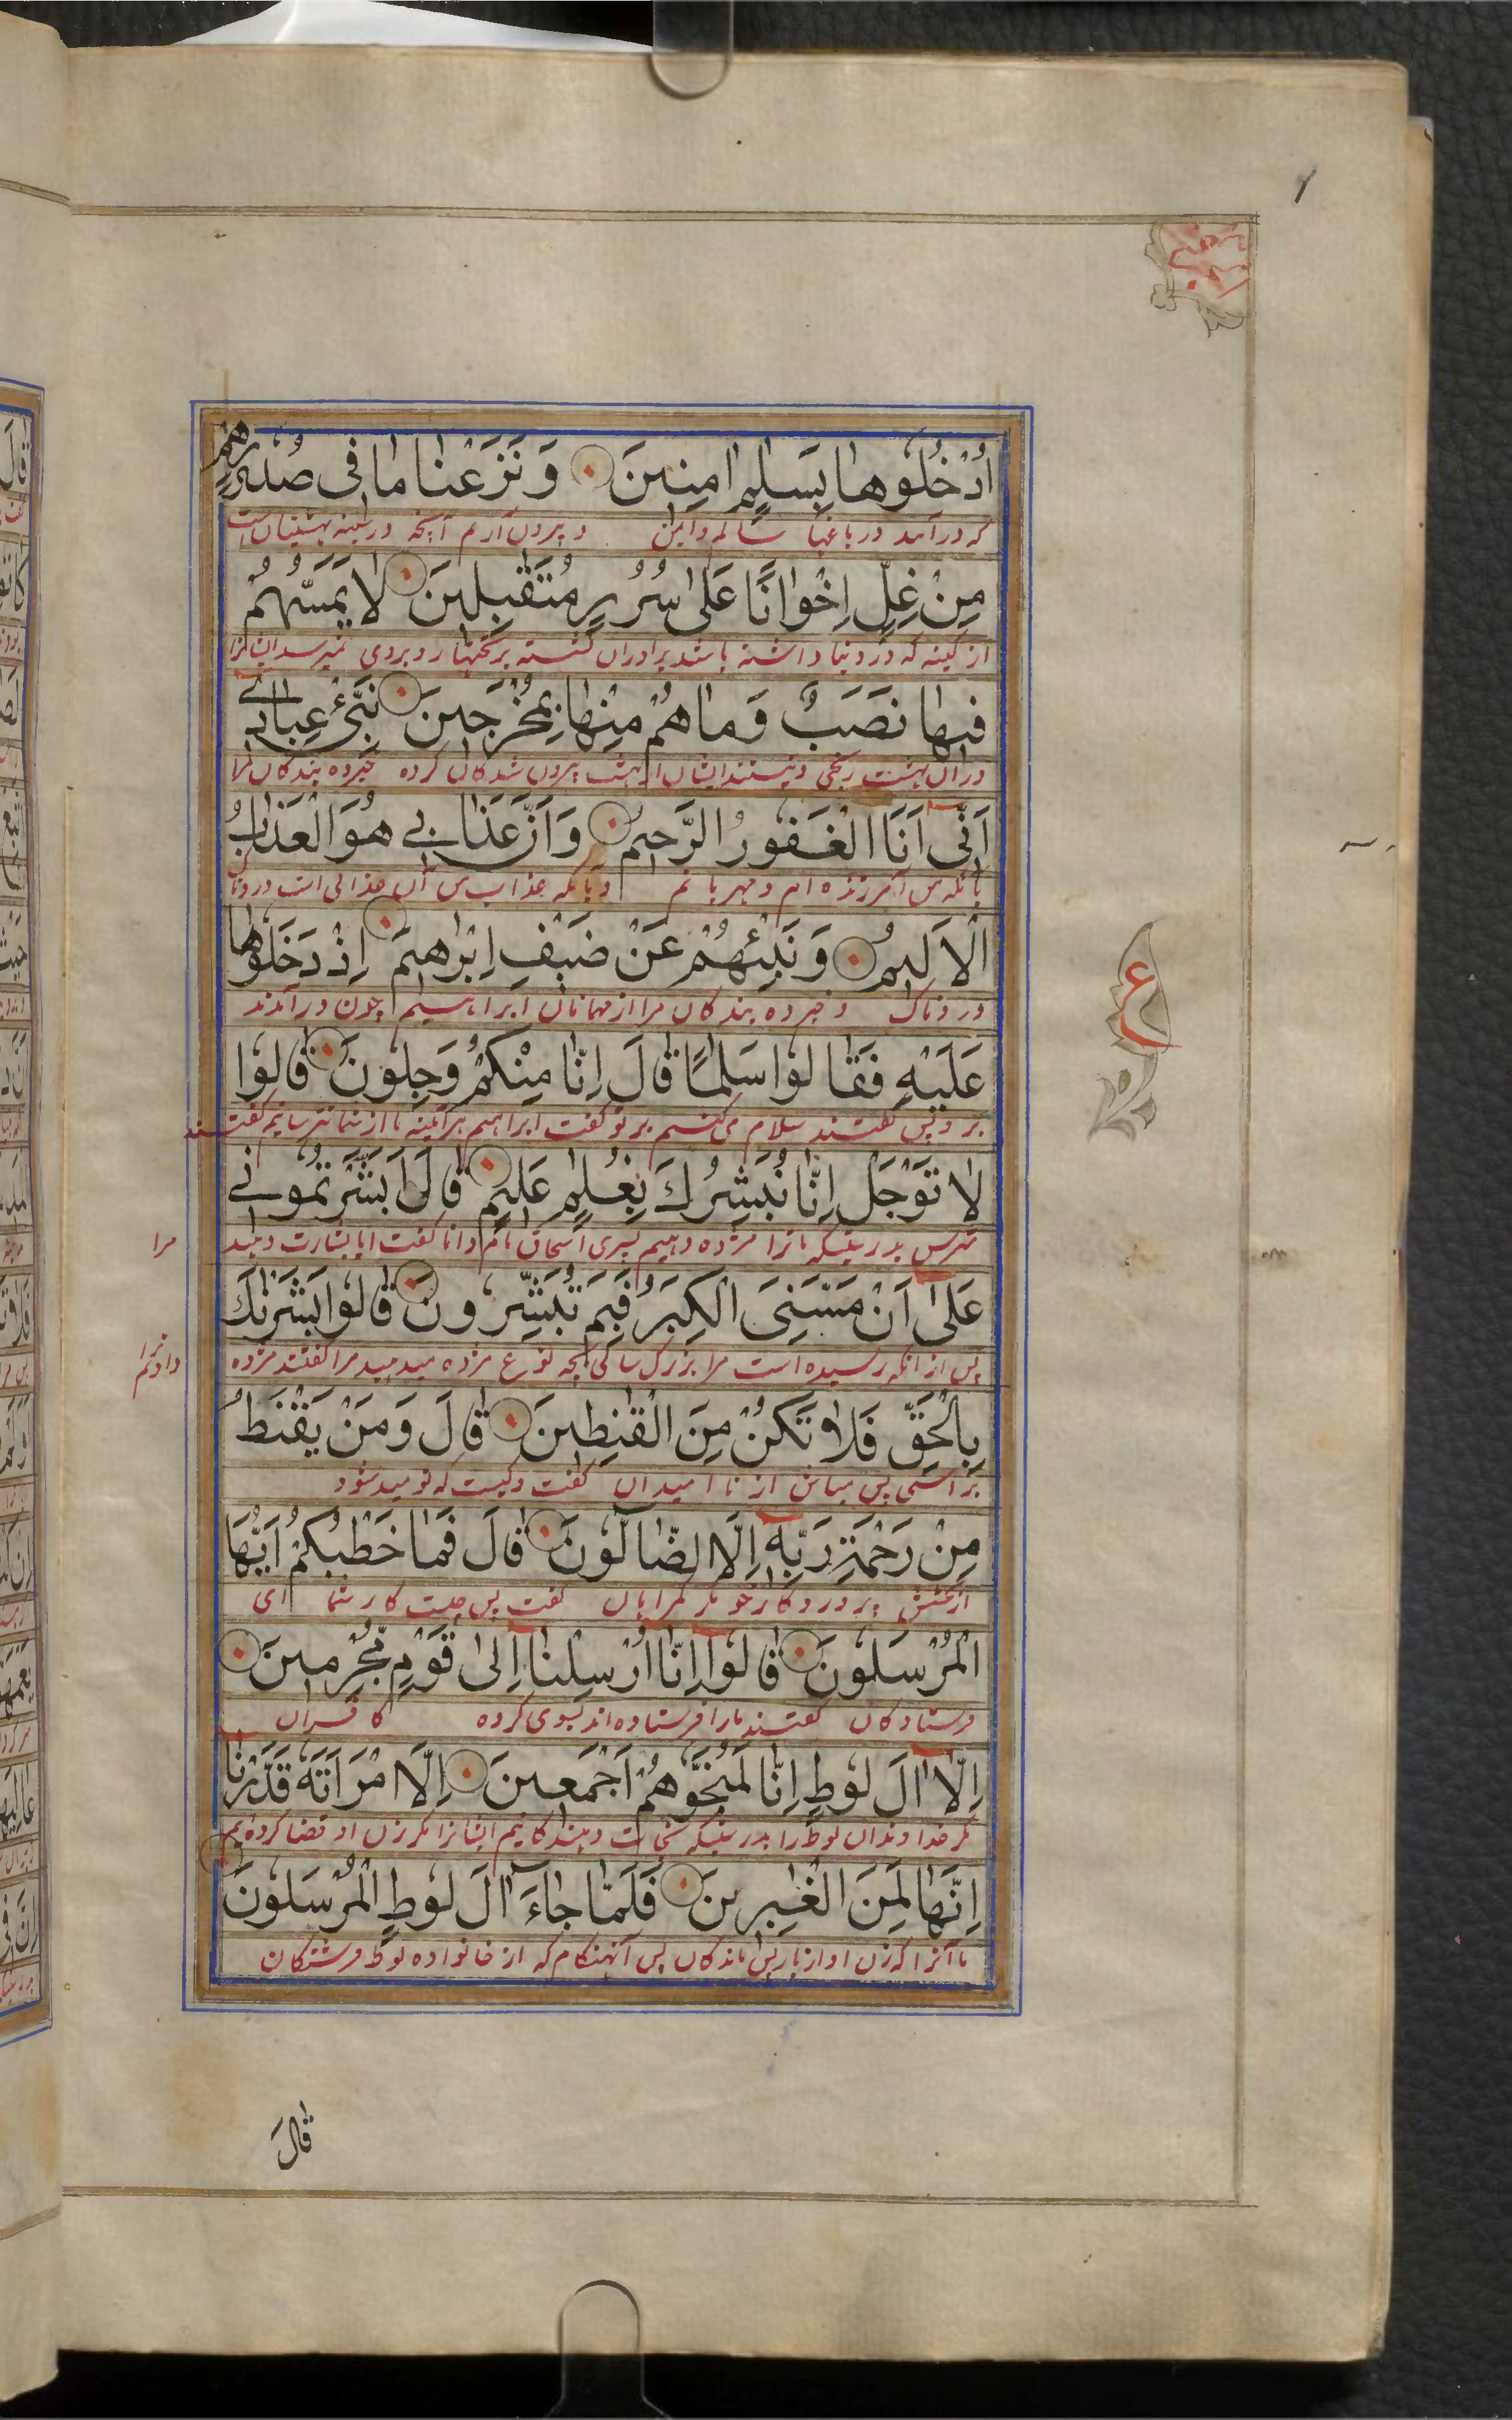 اُدْخُلُوهَا بِسَلٰمٍ اٰمِنِينَ وَنَزَعْنَا مَا فِى صُدُورِهِمْ
که درآمد در باغها سالم و ایمن و بیرون آرم آنچه در سینه بهشتیان است
مِنْ غِلٍّ اِخْوَانًا عَلٰى سُرُرٍ مُتَقٰبِلِينَ لَا يَمَسُّهُمْ
از کینه که در دنیا داشته باشند برادران نشسته بر تختها روبروی نمیرسد ایشانرا
فِيهَا نَصَبٌ وَمَا هُمْ مِنْهَا بِمُخْرَجِينَ نَبِّئْ عِبَادِى
دران بهشت رنجی و نیستند ایشان از بهشت بیرون شدکان خبرده بندکان مرا
اَنِّى اَنَا الْغَفُورُ الرَّحِيمُ وَاَنَّ عَذَابِى هُوَ الْعَذَابُ
بانکه من آمرزنده ام و مهربانم و بانکه عذاب من آن عذابی است
الْاَلِيمُ وَنَبِّئْهُمْ عَنْ ضَيْفِ اِبْرٰهِيمَ اِذْ دَخَلُوا
دردناک و خبرده بندکان مرا از مهمانان ابراهیم چون درآمدند
عَلَيْهِ فَقَالُوا سَلٰمًا قَالَ اِنَّا مِنْكُمْ وَجِلُونَ قَالُوا
برو پس گفتند سلام می‌کنیم بر تو گفت ابراهیم هرآینه ما از شما ترسانیم گفتند
لَا تَوْجَلْ اِنَّا نُبَشِّرُكَ بِغُلٰمٍ عَلِيمٍ قَالَ اَبَشَّرْتُمُونِى
مترس بدرستیکه ما ترا مژده دهیم بپسری اسحاق نام دانا گفت ایا بشارت دهید
مرا
عَلٰى اَنْ مَسَّنِىَ الْكِبَرُ فَبِمَ تُبَشِّرُونَ قَالُوا بَشَّرْنٰكَ
پس از انکه رسیده است مرا بزرک سالی بچه نوع مژده میدهید مرا گفتند مژده
بِالْحَقِّ فَلَا تَكُنْ مِنَ الْقٰنِطِينَ قَالَ وَمَنْ يَقْنَطُ
براستی پس مباش از ناامیدان گفت و کیست که نومید شود
مِنْ رَحْمَةِ رَبِّهٖ اِلَّا الضَّالُّونَ قَالَ فَمَا خَطْبُكُمْ اَيُّهَا
از بخشش پروردکار خود مکر کمراهان گفت پس چیست کار شما ای
الْمُرْسَلُونَ قَالُوا اِنَّا اُرْسِلْنَا اِلٰى قَوْمٍ مُجْرِمِينَ
فرستادکان گفتند ما را فرستاده‌اند بسوی کروه کافران
اِلَّا اٰلَ لُوطٍ اِنَّا لَمُنَجُّوهُمْ اَجْمَعِينَ اِلَّا امْرَاَتَهُ قَدَّرْنَا
مکر خداوندان لوط را بدرستیکه نجات دهندکانیم ایشانرا مکر زن او قضا کرده‌ایم
اِنَّهَا لَمِنَ الْغٰبِرِينَ فَلَمَّا جَاءَ اٰلَ لُوطٍ الْمُرْسَلُونَ
ما آنرا که زن او از باز پس ماندکان پس آنهنکام که از خانواده لوط فرشتکان
ع
قَالَ